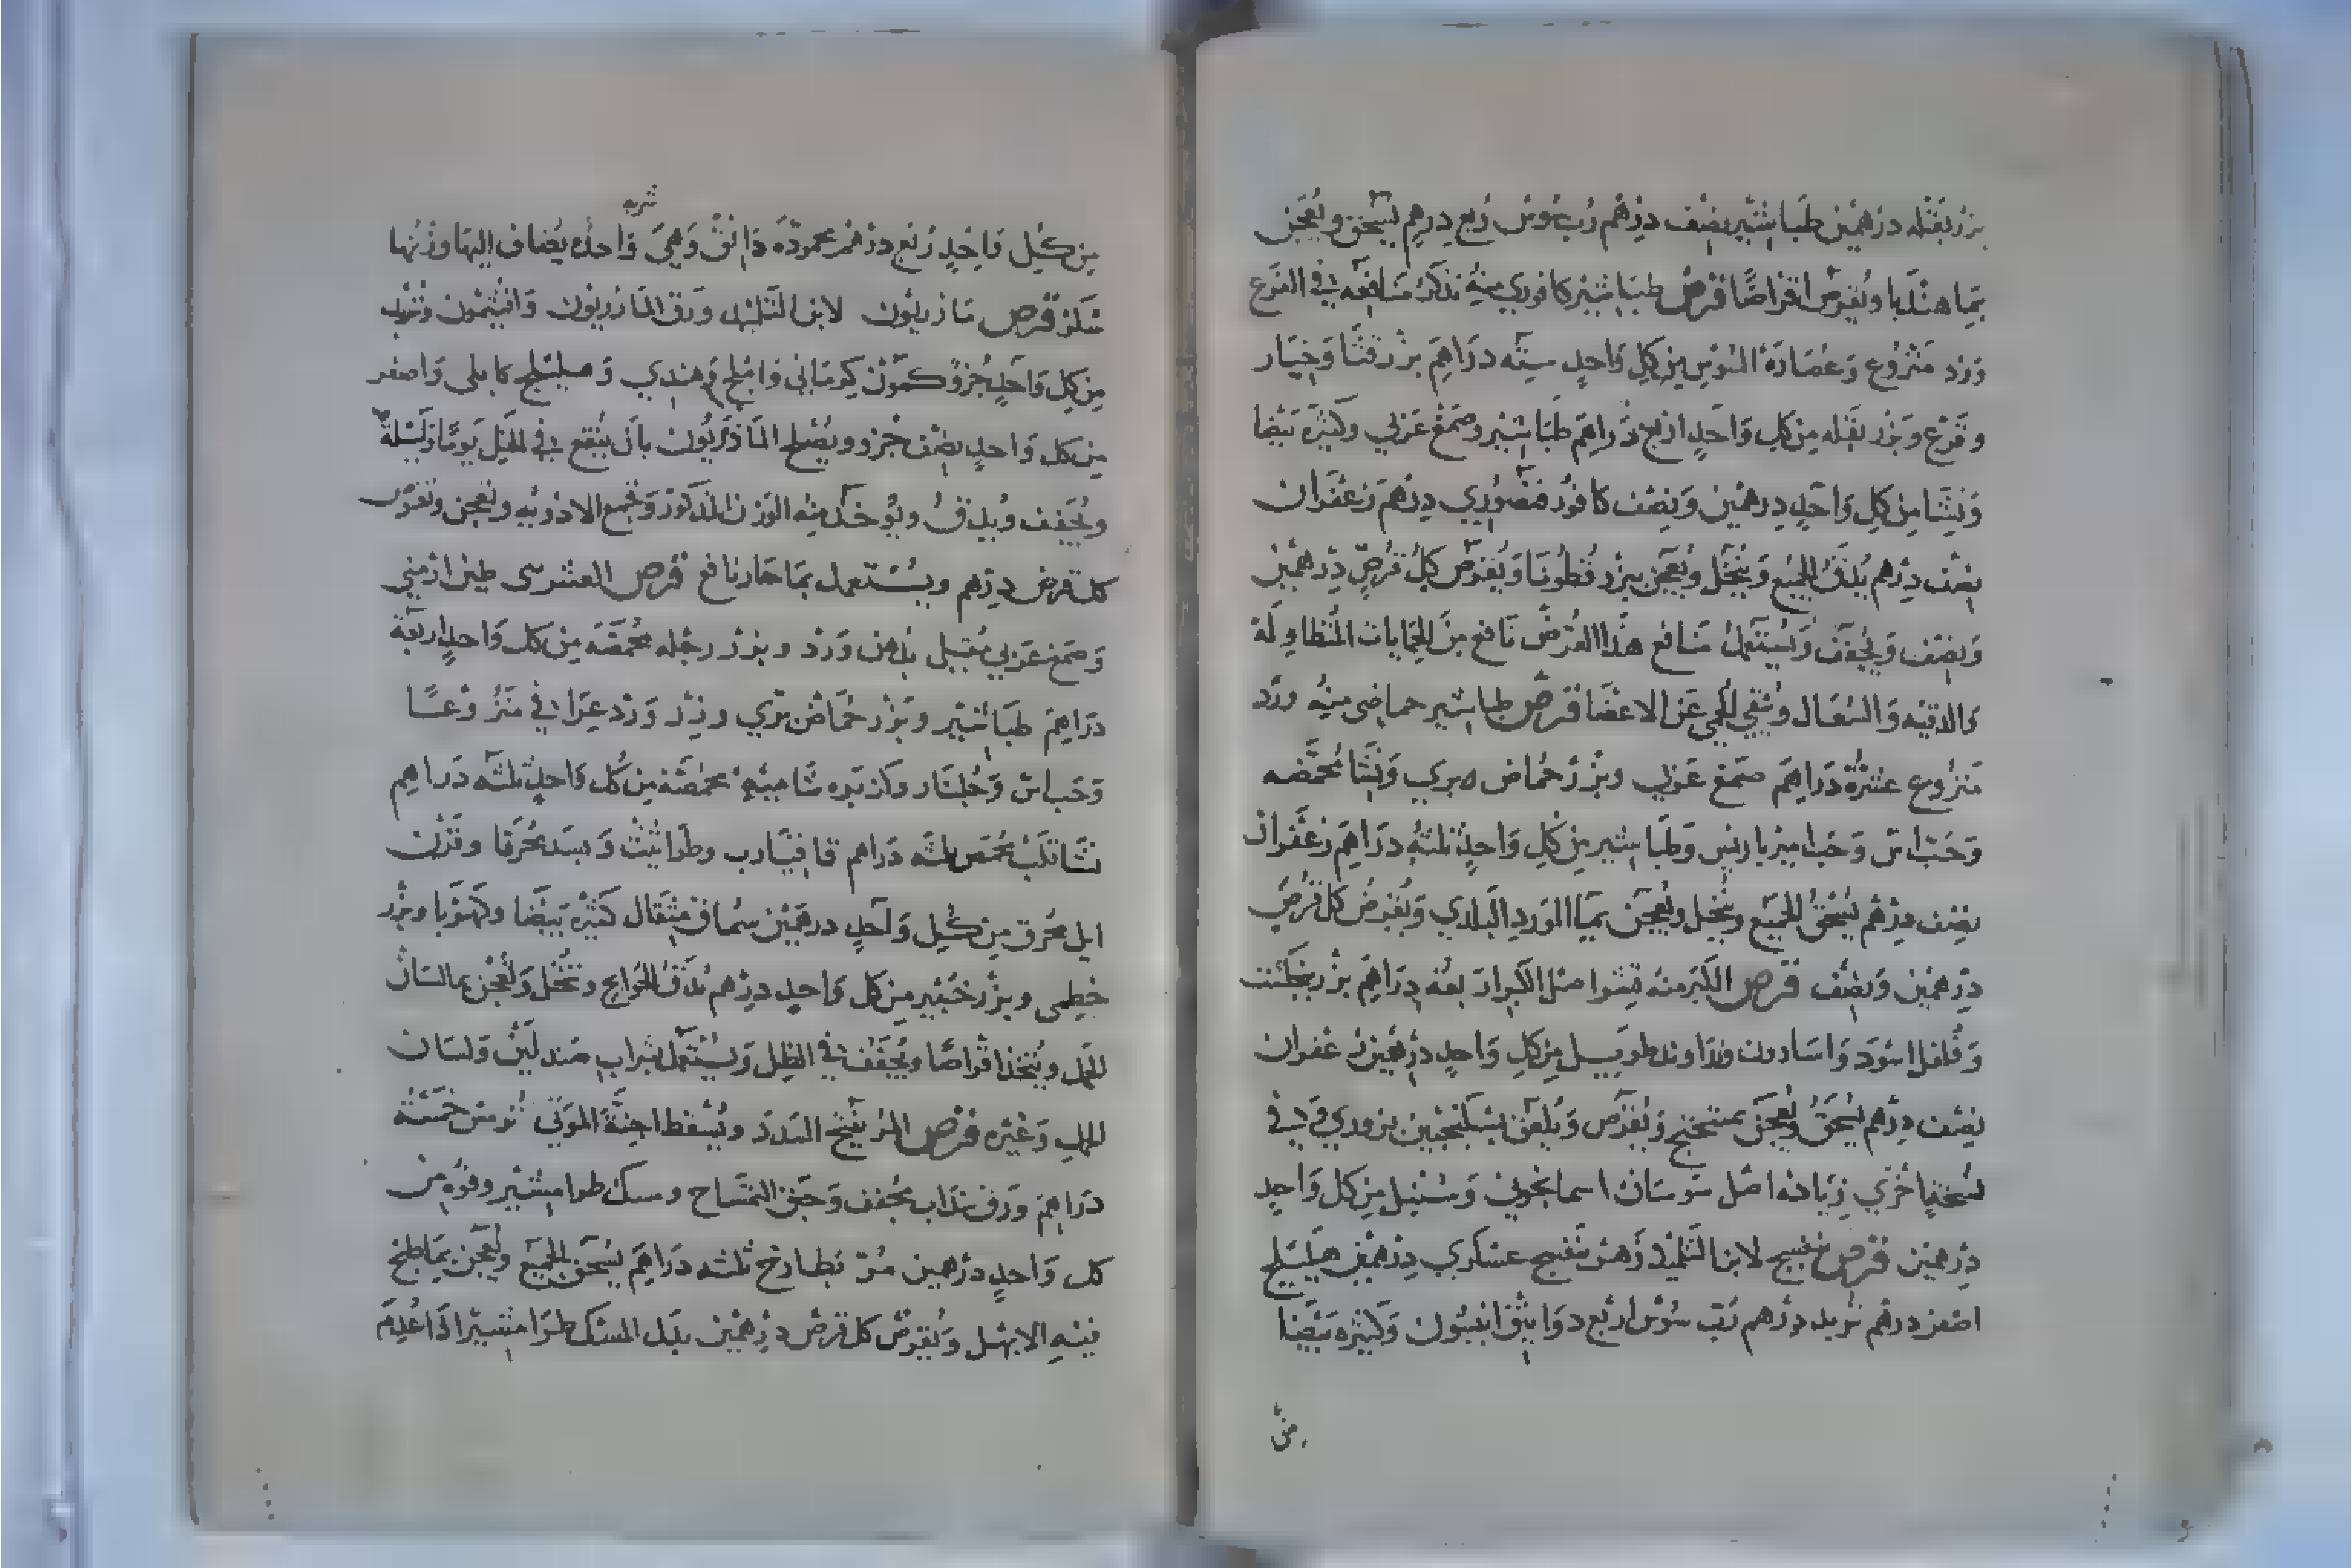 بزر بقله درهمين طباشير نصف درهم رب سوس ربع درهم يسحق ويعجن
بما هندبا ويقرص اقراصا قرص طباشير كافوري منه نذكر منافعه في الفرع
ورد منزوع وعصارة السوس من كل واحد سته دراهم بزر قثا وخيار
وقرع وبزر بقله من كل واحد اربع دراهم طباشير وصمغ عربي وكثيره بيضا
ونشا من كل واحد درهمين ونصف كافور فنصوري درهم زعفران
نصف درهم يدق الجميع وينخل ويعجن ببزر قطونا ويقرص كل قرص درهمين
ونصف ويجفف ويستعمل منافع هذا القرص نافع من الحمايات المتطاولة
كالدقيه والسعال وينقي الحمى عن الاعضا قرص طباشير حماضي منه ورد
منزوع عشرة دراهم صمغ عربي وبزر حماض بري ونشا محمصه
وحب اس وحب امير باريس وطباشير من كل واحد ثلثه دراهم زعفران
نصف درهم يسحق الجميع وينخل ويعجن بما الورد البلادي ويقرص كل قرص
درهمين ونصف قرص الكبر منه قشر اصل الكبر اربعه دراهم بزر بنجكشت
وفلفل اسود واسارون وزراوند طويل من كل واحد درهمين زعفران
نصف درهم يسحق ويعجن ويقرص ويلعق بسكنجبين بزوري وفي
نسخة اخري زيادة اصل سوسان اسمانجوني وسنبل من كل واحد
درهمين قرص بنفسج لابن التلميذ زهر بنفسج عسكري درهمين هليلج
اصفر درهم تربد درهم رب سوس اربع دوانيق انيسون وكثيره بيضا
من
شربه
من كل واحد ربع درهم محمودة دانق وهي واحده يضاف اليها وزنها
سكر قرص مازريون لابن التلميذ ورق المازريون وافتيمون وتربد
من كل واحد جزو كمون كرماني واملج وهندي وهليلج كابلي واصفر
من كل واحد نصف جزو ويصلح المازريون بان ينقع في الخل يوما وليلة
ويجفف ويدق ويوخذ منه الوزن المذكور وتجمع الادويه وتعجن وتقرص
كل قرص درهم ويستعمل بما حار نافع قرص طين ارمني
وصمغ عربي بدهن ورد وبزر رجله محمصه من كل واحد اربعة
دراهم طباشير وبزر حماض بري وزر ورد عراقي منزوعا
وحب اس وجلنار وكزبره شاميه محمصة من كل واحد ثلثه دراهم
محمص ثلثه دراهم اقاقيا ورب وطراثيث وبسد محرقا وقرن
ايل محرق من كل واحد درهمين سماق مثقال كثيره بيضا وكهربا وبزر
خطمي وبزر خبير من كل واحد درهم يدق الحوايج وتنخل وتعجن بما لسان
الحمل ويتخذ اقراصا ويجفف في الظل ويستعمل بشراب صندلين ولسان
الحمل وغيره قرص المر يفتح السدد ويسقط اجنة الموتى ترمس خمسة
دراهم ورق سداب مجفف وحبق التمساح ومسك طرامشير وفوه من
كل واحد درهمين مر ثلثه دراهم يسحق الجميع ويعجن بما طبخ
فيه الابهل ويقرص كل قرص درهمين بدل المسك طرامشير اذا عدم